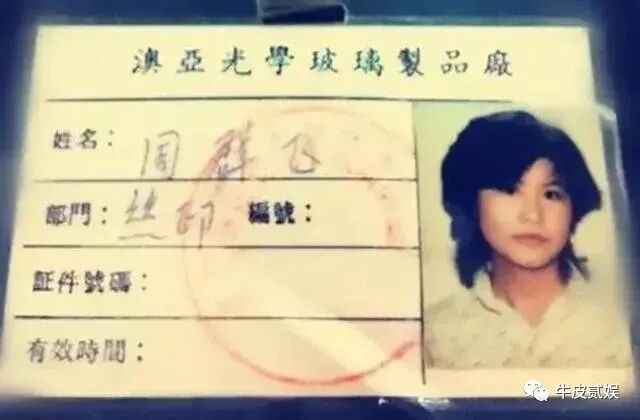 澳亞光學玻璃製品廠
姓名：周群飞
部門：丝印 編號：
証件號碼：
有效時間：
牛皮贰娱